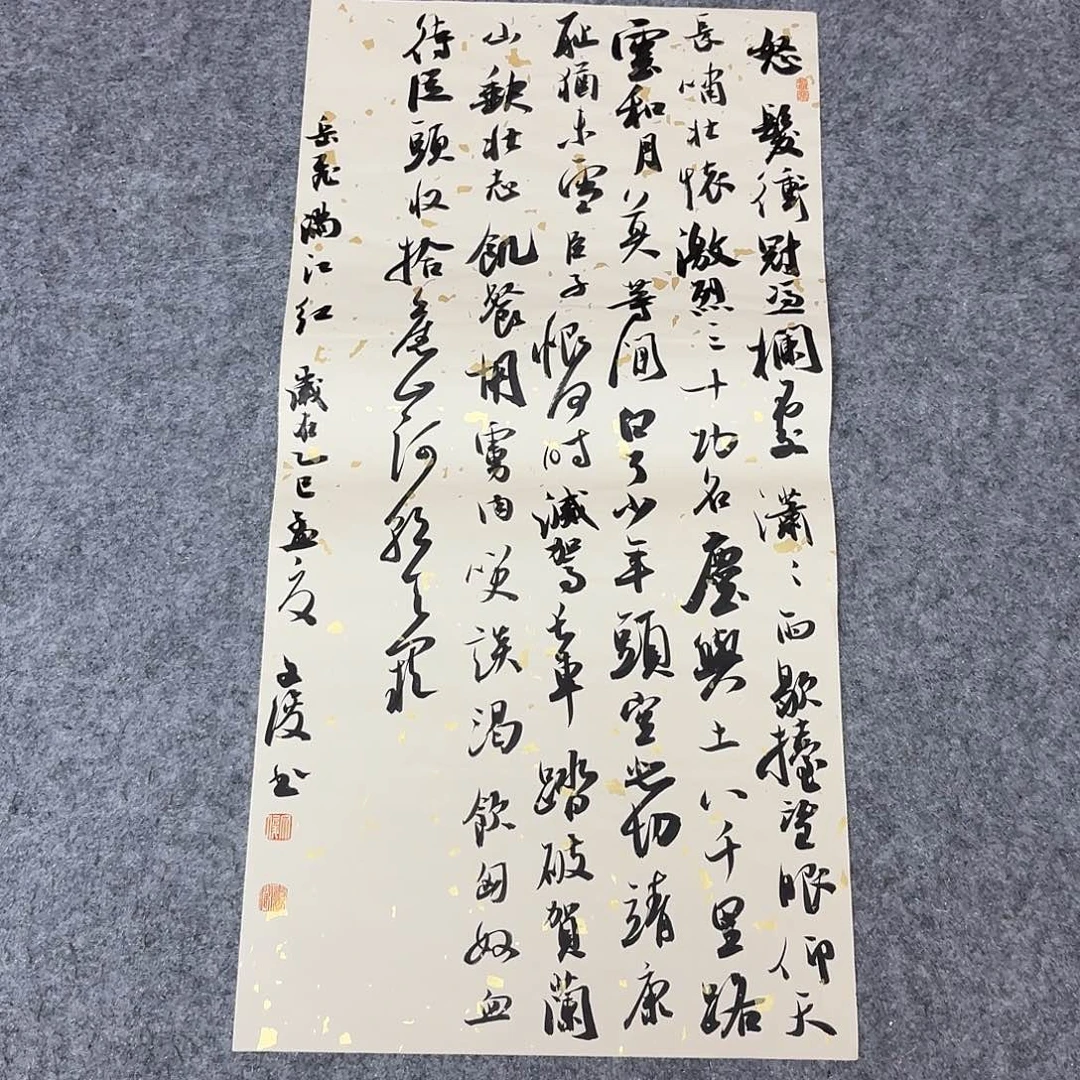 怒髮衝冠凭欄處瀟々雨歇擡望眼仰天
長嘯壯懷激烈三十功名塵與土八千里路
雲和月莫等間白了少年頭空悲切靖康
耻猶未雪臣子恨何時滅駕長車踏破賀蘭
山缺壯志飢餐胡虜肉笑談渴飲匈奴血
待從頭收拾舊山河朝天闕
岳飛滿江紅 歲在乙巳孟夏 文 書